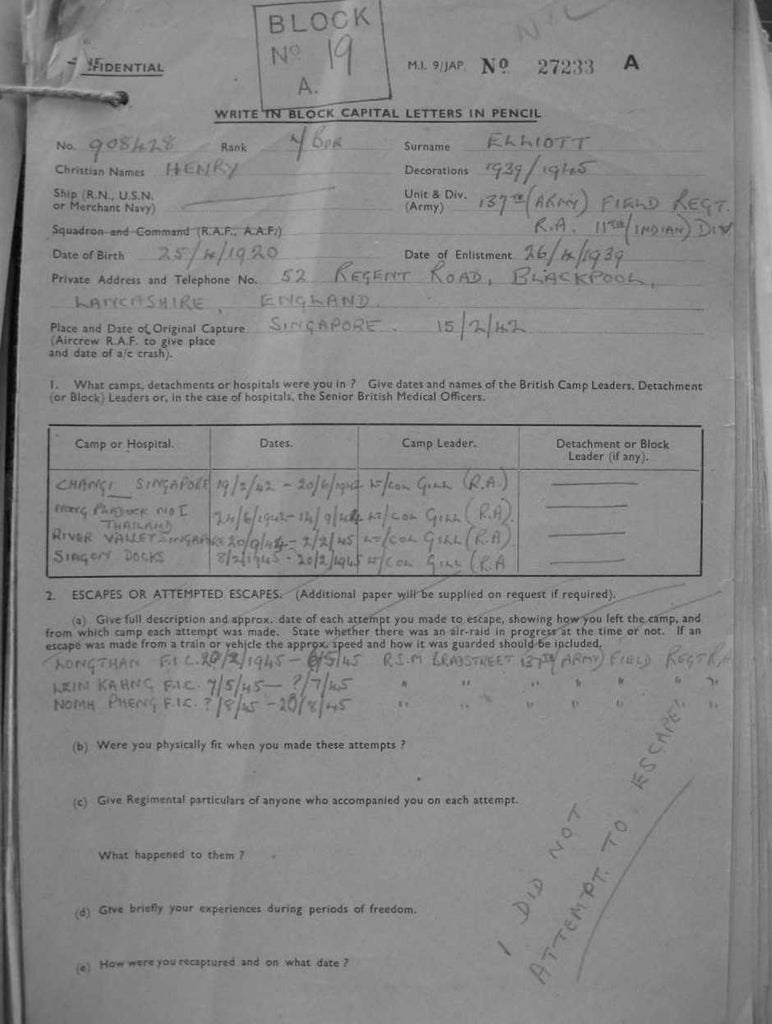 BLOCK
Nº 19
A.
NIL
FIDENTIAL
M.I. 9/JAP Nº 27233 A
WRITE IN BLOCK CAPITAL LETTERS IN PENCIL
No. 908428 Rank Surname ELLIOTT
Christian Names HENRY Decorations 1939/1945
Ship (R.N., U.S.N. or Merchant Navy)
Unit & Div. (Army) 137TH (ARMY) FIELD REGT.
R.A. 11TH (INDIAN) DIV
Squadron and Command (R.A.F., A.A.F.)
Date of Birth 25/4/1920 Date of Enlistment 26/4/1939
Private Address and Telephone No. 52 REGENT ROAD, BLACKPOOL,
LANCASHIRE, ENGLAND.
Place and Date of Original Capture SINGAPORE. 15/2/42
(Aircrew R.A.F. to give place
and date of a/c crash).
1. What camps, detachments or hospitals were you in ? Give dates and names of the British Camp Leaders, Detachment
(or Block) Leaders or, in the case of hospitals, the Senior British Medical Officers.
Camp or Hospital. Dates. Camp Leader. Detachment or Block
Leader (if any).
CHANGI SINGAPORE 19/2/42 - 20/6/1942 LT/COL GILL (R.A.)
NONG PLADUCK NO I
THAILAND 24/6/1942 - 14/9/44 LT/COL GILL (R.A).
RIVER VALLEY SINGAPORE 20/9/44 - 2/2/45 LT/COL GILL (R.A)
SIAGON DOCKS 8/2/1945 - 20/2/1945 LT/COL GILL (R.A
2. ESCAPES OR ATTEMPTED ESCAPES. (Additional paper will be supplied on request if required).
(a) Give full description and approx. date of each attempt you made to escape, showing how you left the camp, and
from which camp each attempt was made. State whether there was an air-raid in progress at the time or not. If an
escape was made from a train or vehicle the approx. speed and how it was guarded should be included.
LONGTHAN F.I.C. 20/2/1945 - 6/5/45 R.S.M BRADSTREET 137TH (ARMY) FIELD REGT R.A
KEIN KAHNG F.I.C. 7/5/45 - ?/7/45 " " " " " " "
NOMH PHENG F.I.C. ?/8/45 - 20/8/45 " " " " " " "
(b) Were you physically fit when you made these attempts ?
(c) Give Regimental particulars of anyone who accompanied you on each attempt.
What happened to them ?
(d) Give briefly your experiences during periods of freedom.
(e) How were you recaptured and on what date ?
I DID NOT
ATTEMPT TO ESCAPE